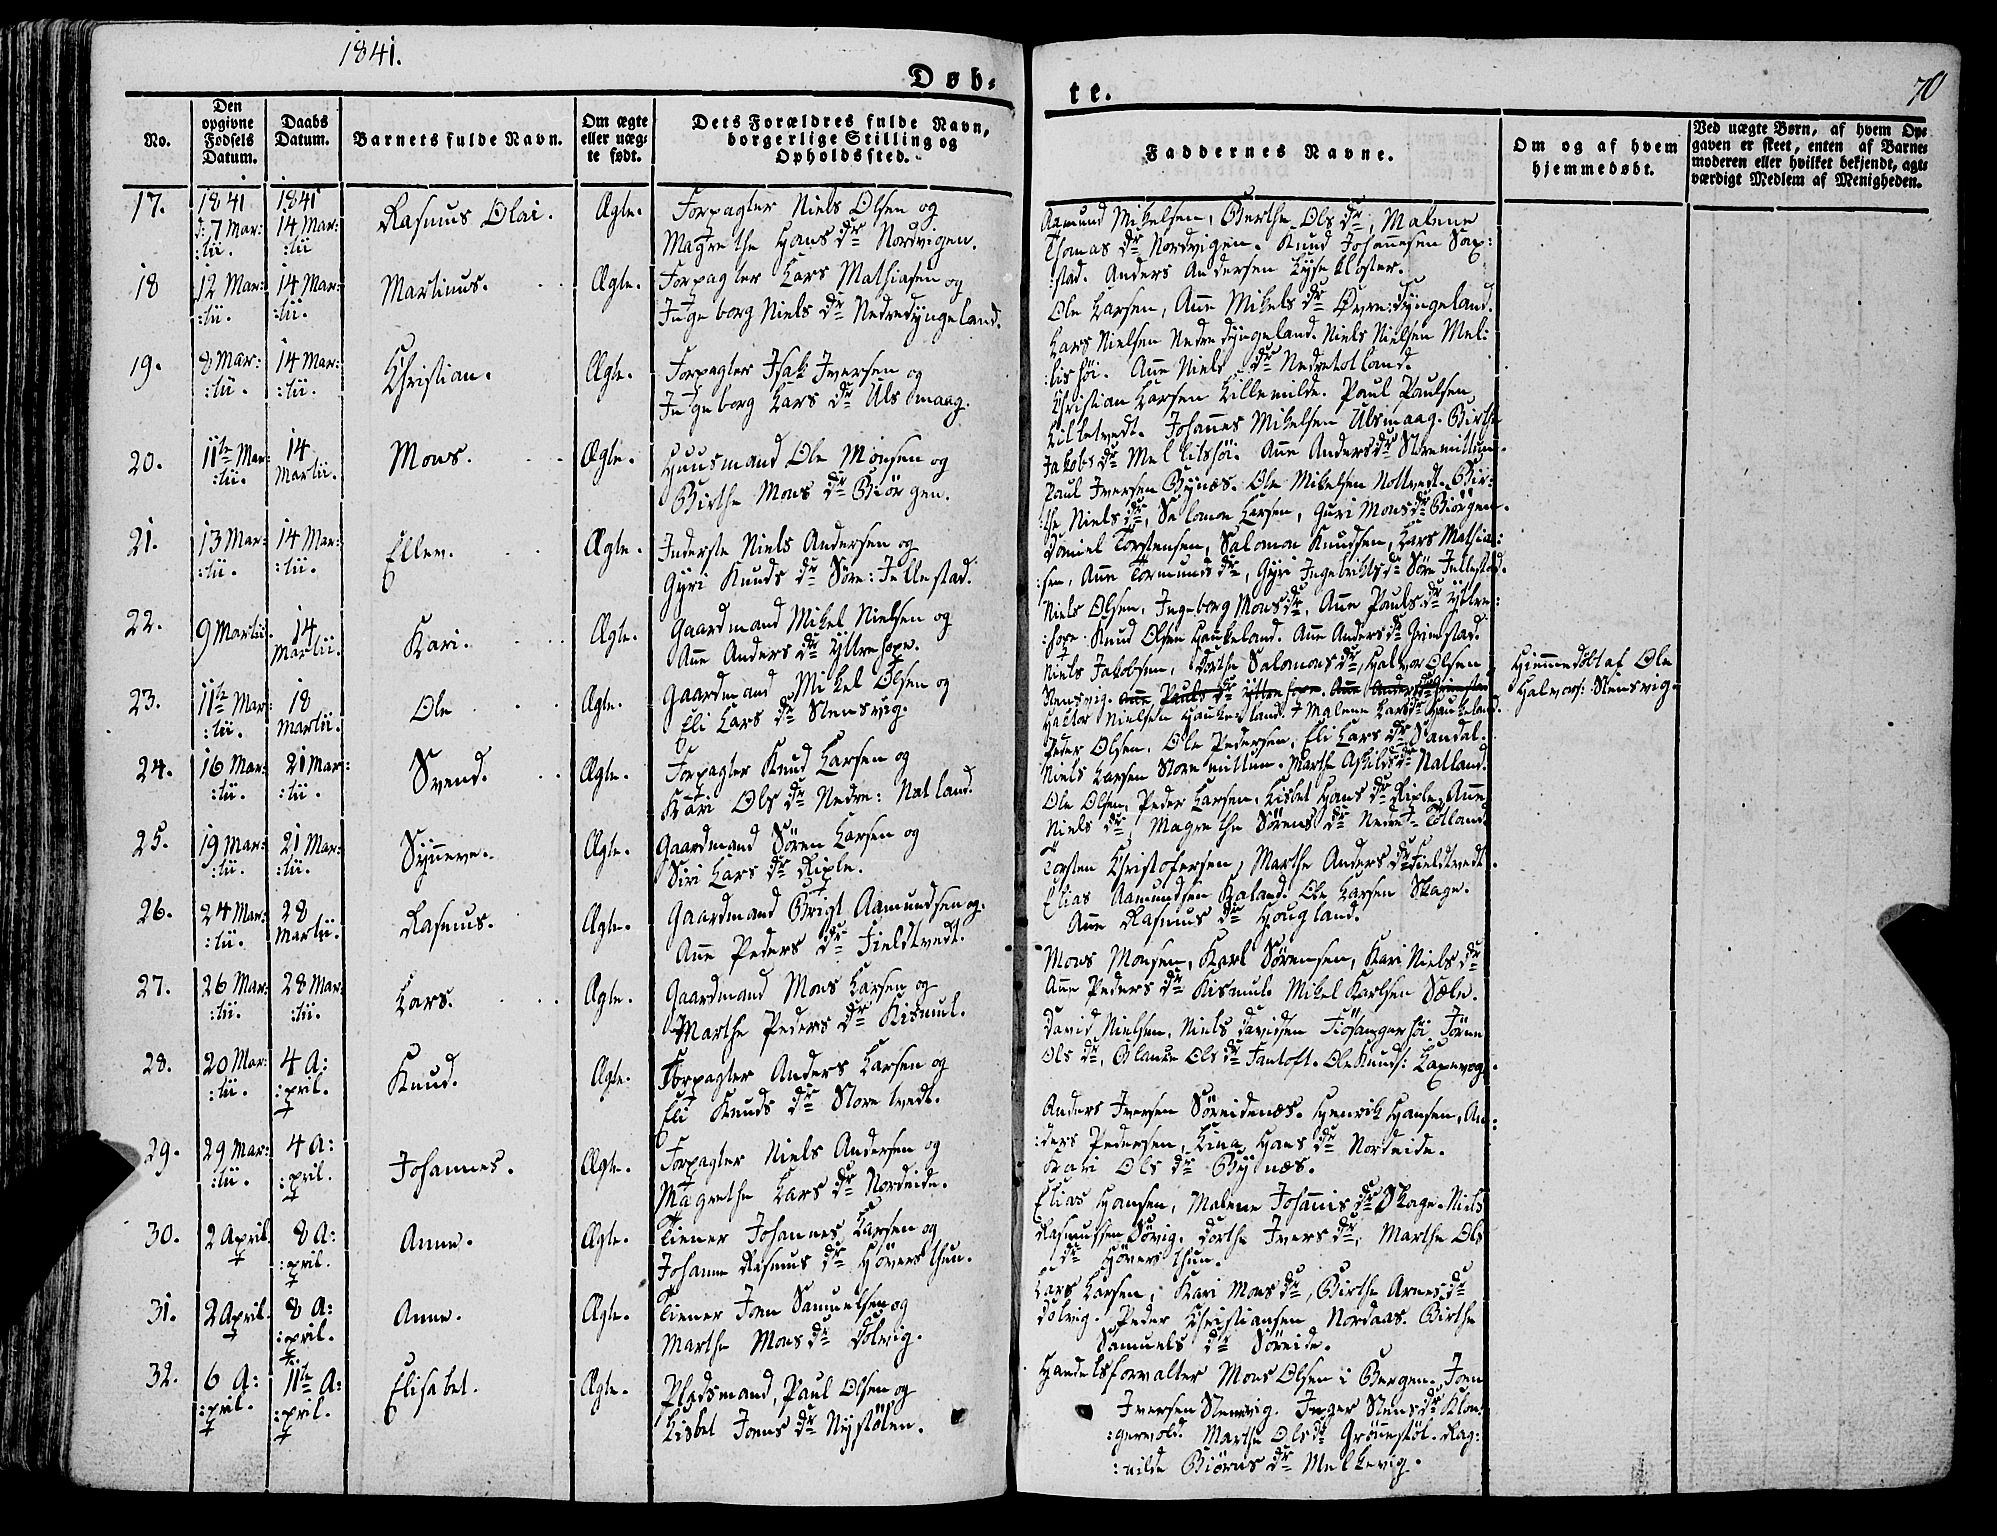 1841.
Døb-
te.
70
No.
Den opgivne Fødsels Datum.
Daabs Datum.
Barnets fulde Navn.
Om ægte eller uægte født.
Dets Forældres fulde Navn, borgerlige Stilling og Opholdssted.
Faddernes Navne.
Om og af hvem hjemmedøbt.
Ved uægte Børn, af hvem Opgaven er skeet, enten af Barnemoderen eller hvilket bekjendt, agtværdigt Medlem af Menigheden.
17. 1841 d: 7 Mar: :tii. 1841 14 Mar: :tii Rasmus Olai. Ægte. Forpagter Niels Olsen og
Magrethe Hans dr Nordvigen.
Aamund Mikelsen, Berthe Ols dr, Malene
Thomas dr Nordvigen. Knud Johannesen Sax:
:stad. Anders Andersen Lysekloster.
18 12 Mar: :tii. 14 Mar: :tii. Martinus. Ægte. Forpagter Lars Mathiasen og
Ingeborg Niels dr Nedredyngeland.
Ole Larsen, Anne Mikels dr Øvre:dyngeland.
Lars Nielsen Nedredyngeland. Niels Nielsen Mel:
:lishøi. Anne Niels dr Nedretolland.
19. 8 Mar: :tii. 14 Mar: :tii. Christian. Ægte. Forpagter Isak Iversen og
Ingeborg Lars dr Ulsmaag.
Christian Larsen Lillemilde. Paul Paulsen
Lilletvedt. Johannes Mikelsen Ulsmaag. Birthe
Jakobs dr Mellishøi. Anne Anders dr Storemillum.
20. 11te Mar: :tii. 14 Martii. Mons. Ægte. Huusmand Ole Monsen og
Birthe Mons dr Biørgen.
Paul Iversen Bynæs. Ole Mikelsen Nottvedt. Bir:
the Niels dr, Salomon Larsen, Guri Mons dr Biörgen.
21. 13 Mar: :tii. 14 Mar: :tii. Ellev. Ægte. Inderste Niels Andersen og
Gyri Knuds dr Søre:Fellestad.
Daniel Torstensen, Salomon Knudsen, Lars Mathia:
:sen, Anne Tormunds dr, Gyri Ingebrikts dr Søre Fellestad.
22. 9 Martii. 14 Martii. Kari. Ægte. Gaardmand Mikel Nielsen og
Anne Anders dr Yttrehope.
Niels Olsen, Ingeborg Mons dr, Anne Pauls dr Yttre:
:hope. Knud Olsen Haukeland. Anne Anders dr Grimstad.
23. 11te Mar: :tii. 18 Martii. Ole Ægte. Gaardmand Mikel Olsen og
Eli Lars dr Stensvig.
Niels Jakobsen, Dorthe Salomons dr, Halvor Olsen
Stensvig. Anne Pauls dr Yttrehope. Anne Anders dr Grimstad
Haktor Nielsen Haukeland. Malene Lars dr Haukeland.
Hiemmedøbt af Ole
Halvors: Stensvig.
24. 16 Mar: :tii. 21 Mar: :tii. Svend. Ægte. Forpagter Knud Larsen og
Kari Ols dr Nedre: Natland.
Peder Olsen. Ole Pedersen, Eli Lars dr Sandal.
Niels Larsen Storemillum. Marthe Askilds dr Natland.
25. 19 Mar: :tii. 21 Mar: :tii. Synneve. Ægte. Gaardmand Søren Larsen og
Siri Lars dr Riple.
Ole Olsen, Peder Larsen, Lisbet Hans dr Riple, Anne
Niels dr, Magrethe Sørens dr Nedre-Tolland.
26. 24 Mar: :tii. 28 Martii. Rasmus. Ægte. Gaardmand Brigt Aamundsen og
Anne Peders dr Fieldtvedt.
Torsten Christofersen, Marthe Anders dr Fieldtvedt.
Elias Aamundsen Kaland. Ole Larsen Skage.
Anne Rasmus dr Hougland.
27. 26 Mar: :tii. 28 Mar: :tii. Lars. Ægte. Gaardmand Mons Larsen og
Marthe Peders dr Kismul.
Mons Monsen, Karl Sørensen, Kari Niels dr
Anne Peders dr Kismul. Mikel Karlsen Sæle.
28. 20 Mar: :tii. 4 A: :pril. Knud. Ægte. Forpagter Anders Larsen og
Eli Knuds dr Storetvedt.
David Nielsen, Niels Davidsen Fiösangerhøi Jörn
Ols dr, Blanke Ols dr Fantoft. Ole Knuds: Laxevog.
29. 29 Mar: :tii. 4 A: :pril. Johannes. Ægte. Forpagter Niels Andersen og
Magrethe Lars dr Nordeide.
Anders Iversen Søreidenæs. Henrik Hansen, An:
:ders Pedersen, Lina Hans dr Nordeide.
Kari Ols dr Bynæs.
30. 2 April. 8 A: :pril. Anne. Ægte. Tiener Johannes Larsen og
Johanne Rasmus dr Høversthun.
Elias Hansen, Malene Johannis dr Skage. Niels
Rasmussen Søvig. Dorthe Ivers dr, Marthe Ols
dr Høversthun.
31. 2 April. 8 A: :pril. Anne. Ægte. Tiener Joen Samuelsen og
Marthe Mons dr Dolvig.
Lars Larsen, Kari Mons dr, Birthe Arnes dr
Dolvig. Peder Christiansen Nordaas. Birthe
Samuels dr Søreide.
32. 6 A: :pril. 11te A: :pril. Elisabet. Ægte. Pladsmand, Paul Olsen og
Lisbet Joens dr Nystølen.
Handelsforvalter Mons Olsen i Bergen. Joen
Iversen Stensvig. Inger Stens dr Klon:
:gervold. Marthe Ols dr Grønnestøl. Rag:
:nilde Biørns dr Melkevig.